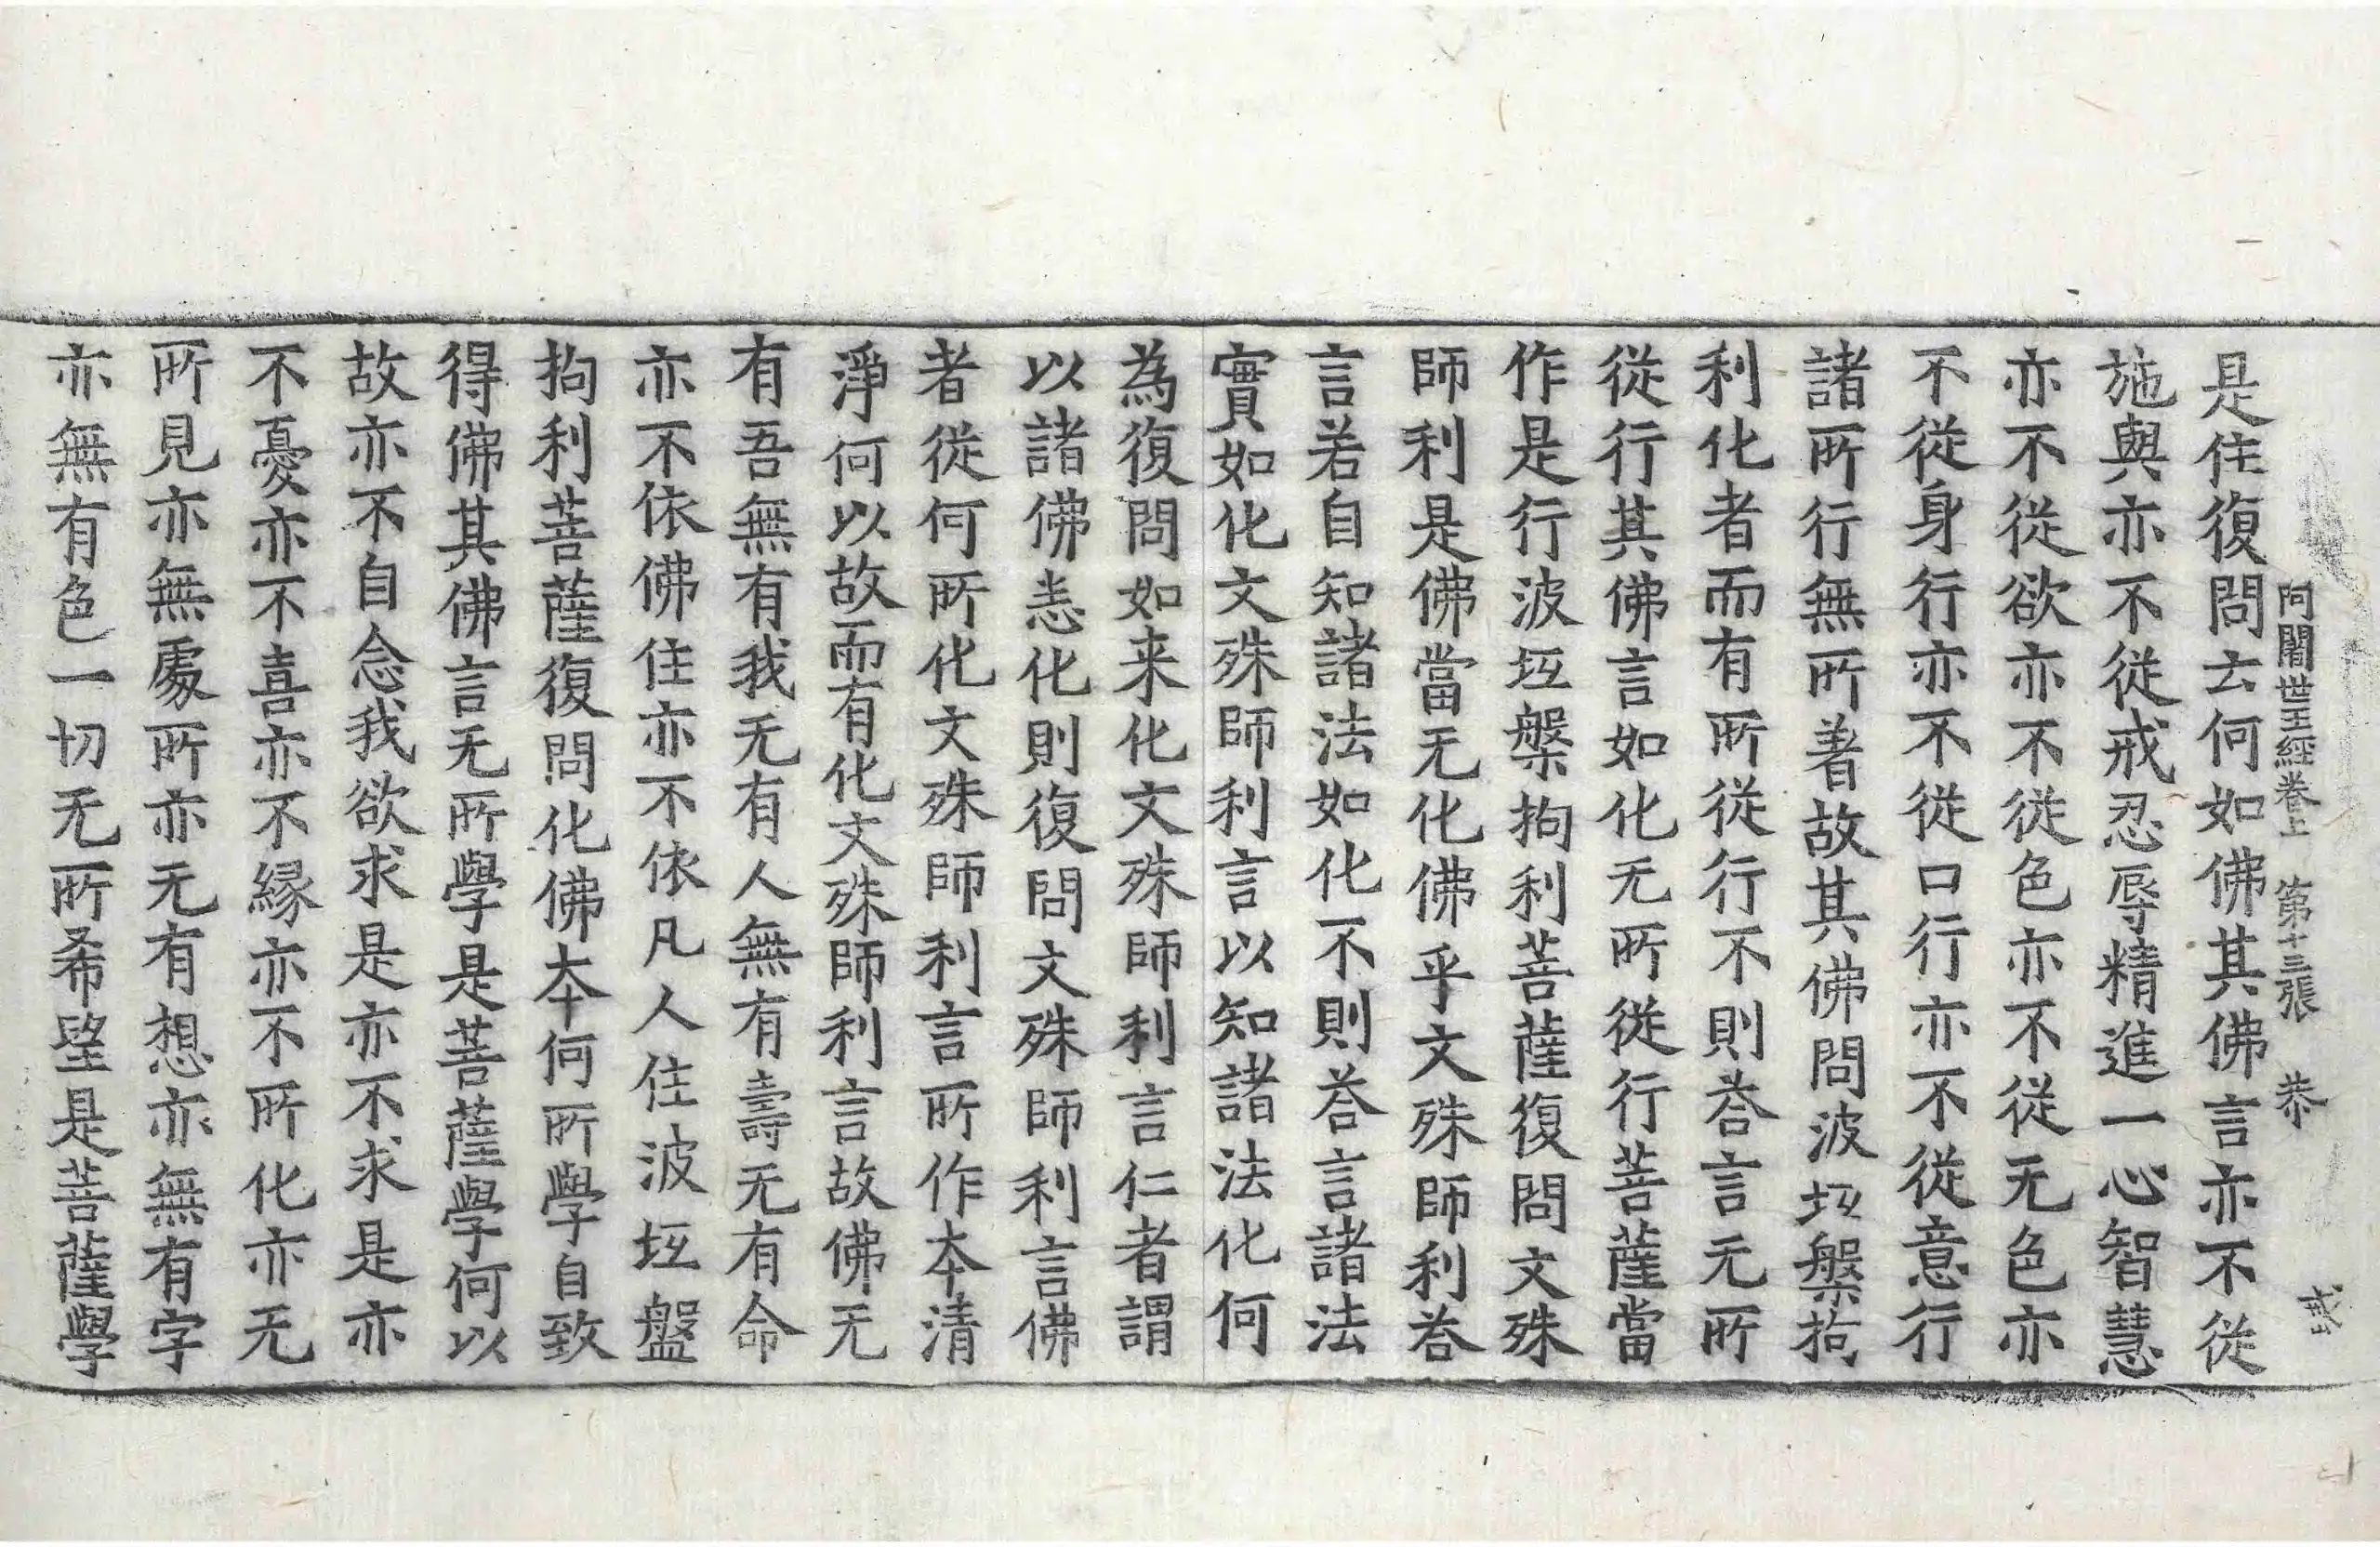 阿闍世王經卷上　第十三張　恭
是住復問云何如佛其佛言亦不從
施與亦不從戒忍辱精進一心智慧
亦不從欲亦不從色亦不從无色亦
不從身行亦不從口行亦不從意行
諸所行無所著故其佛問波坘槃拘
利化者而有所從行不則荅言无所
從行其佛言如化无所從行菩薩當
作是行波坘槃拘利菩薩復問文殊
師利是佛當无化佛乎文殊師利荅
言若自知諸法如化不則荅言諸法
實如化文殊師利言以知諸法化何
為復問如来化文殊師利言仁者謂
以諸佛恙化則復問文殊師利言佛
者從何所化文殊師利言所作本清
淨何以故而有化文殊師利言故佛无
有吾無有我无有人無有壽无有命
亦不依佛住亦不依凡人住波坘盤
拘利菩薩復問化佛本何所學自致
得佛其佛言无所學是菩薩學何以
故亦不自念我欲求是亦不求是亦
不憂亦不喜亦不縁亦不所化亦无
所見亦無處所亦无有想亦無有字
亦無有色一切无所希望是菩薩學